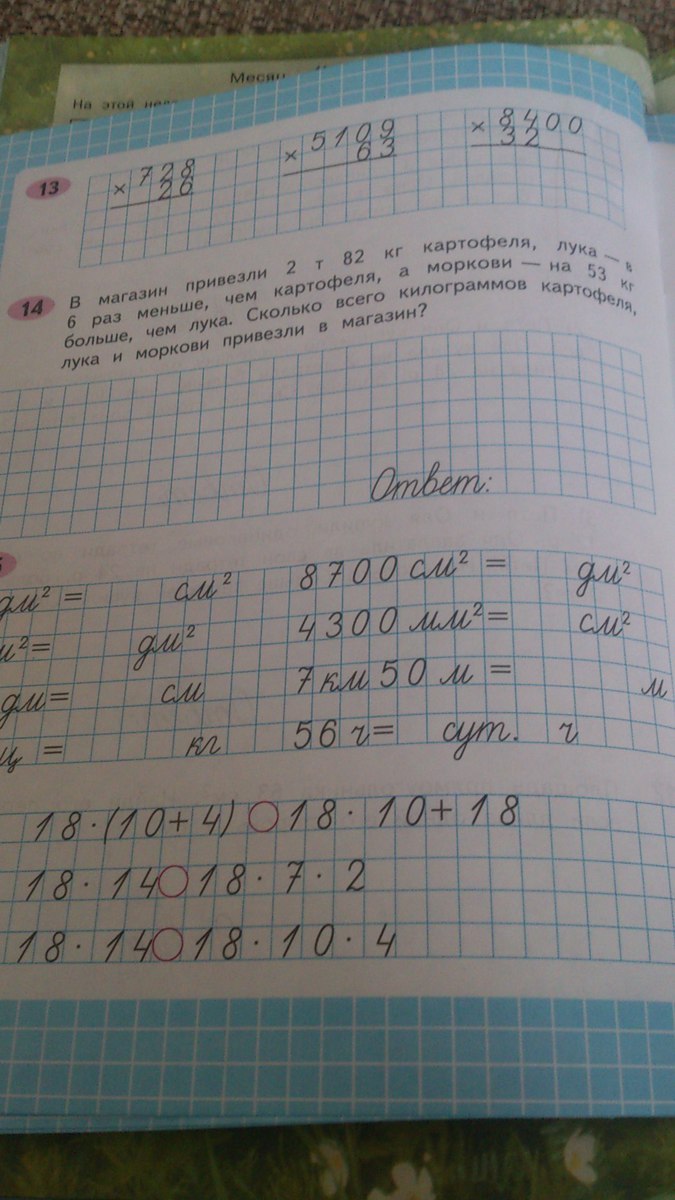 Месяц
На этой
13
× 728
26
× 5109
63
× 8400
32
14
В магазин привезли 2 т 82 кг картофеля, лука — в
6 раз меньше, чем картофеля, а моркови — на 53 кг
больше, чем лука. Сколько всего килограммов картофеля,
лука и моркови привезли в магазин?
Ответ:
дм² = см² 8700 см² = дм²
м² = дм² 4300 мм² = см²
дм = см 7 км 50 м = м
ц = кг 56 ч = сут. ч
18 · (10 + 4) ○ 18 · 10 + 18
18 · 14 ○ 18 · 7 · 2
18 · 14 ○ 18 · 10 · 4